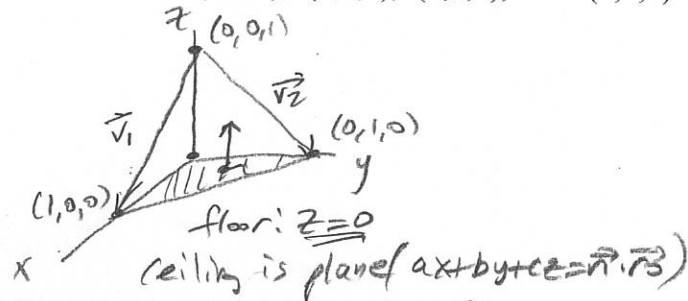 z (0,0,1)
v⃗₁ v⃗₂
(0,1,0)
y
(1,0,0)
floor: z=0
x ceiling is plane( ax+by+cz=n⃗·r⃗₃)